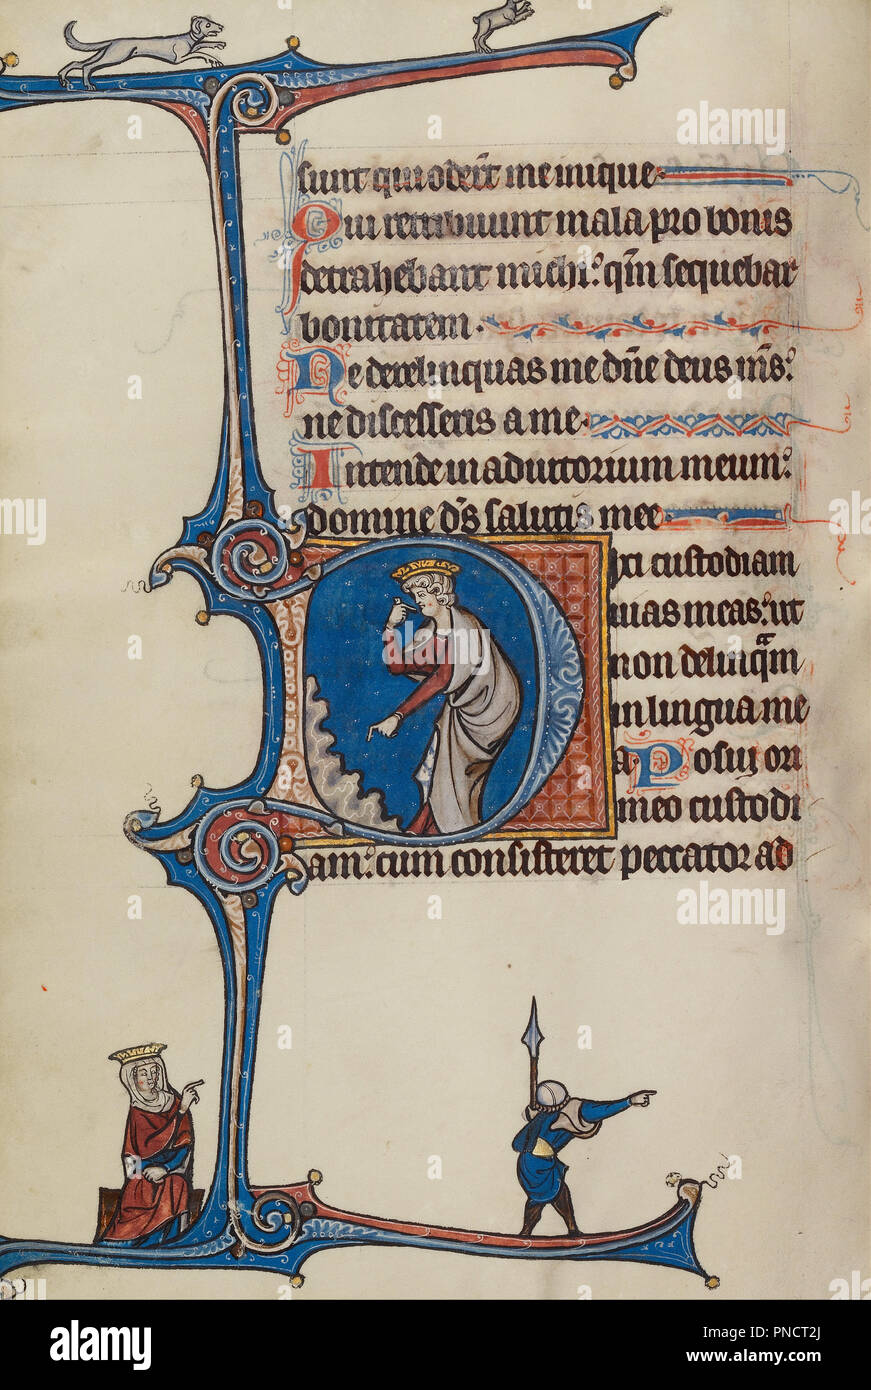 sunt qui oder̄t me inique
Qui retribuunt mala pro bonis
detrahebant michi: qm̄ sequebar
bonitatem.
Ne derelinquas me dn̄e deus ms̄:
ne discesseris a me.
Intende in adiutorium meum:
domine ds̄ salutis mee
Dixi custodiam
uias meas: ut
non delinqam
in lingua me
a. Posui ori
meo custodi
am: cum consisteret peccator ad
alamy
Image ID: PNCT2J
www.alamy.com